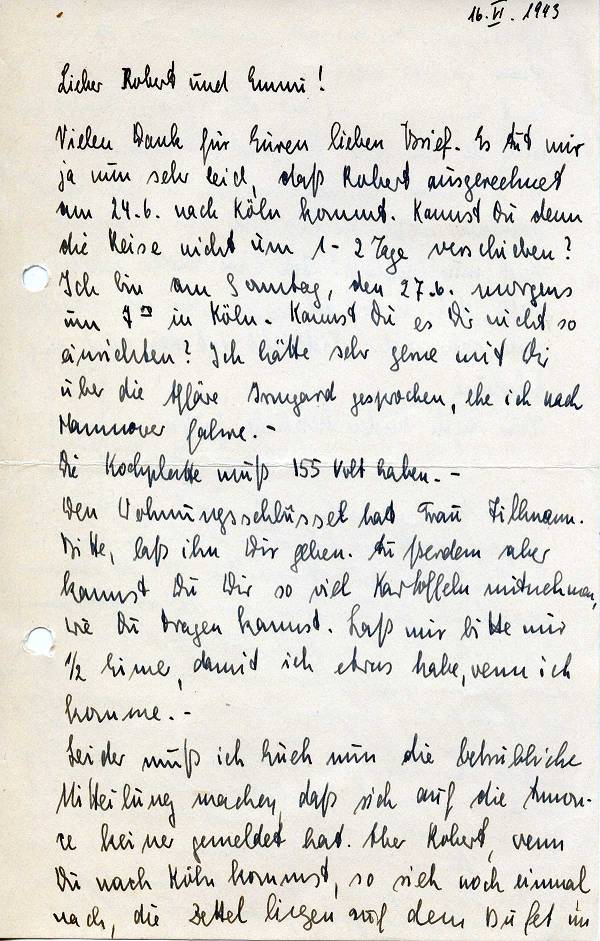 16.VI.1943
Lieber Robert und Emmi!
Vielen Dank für Euren lieben Brief. Es tut mir
ja nun sehr leid, daß Robert ausgerechnet
am 24.6. nach Köln kommt. Kannst Du denn
die Reise nicht um 1-2 Tage verschieben?
Ich bin am Sonntag, den 27.6. morgens
um 7⁰⁰ in Köln. Kannst Du es Dir nicht so
einrichten? Ich hätte sehr gerne mit Dir
über die Affäre Irmgard gesprochen, ehe ich nach
Hannover fahre.-
Die Kochplatte muß 155 Volt haben.-
Den Wohnungsschlüssel hat Frau Tillmann.
Bitte, laß ihn Dir geben. Außerdem aber
kannst Du Dir so viel Kartoffeln mitnehmen,
wie Du tragen kannst. Laß mir bitte nur
1/2 Eimer, damit ich etwas habe, wenn ich
komme.-
Leider muß ich Euch nun die betrübliche
Mitteilung machen, daß sich auf die Annon-
ce keiner gemeldet hat. Aber Robert, wenn
Du nach Köln kommst, so sieh noch einmal
nach, die Zettel liegen auf dem Bufet im